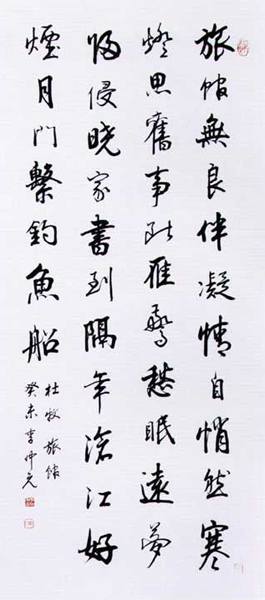 旅館無良伴凝情自悄然寒
燈思舊事断雁驚愁眠遠夢
歸侵曉家書到隔年滄江好
煙月門繫釣魚船
杜牧旅館
癸未李仲元